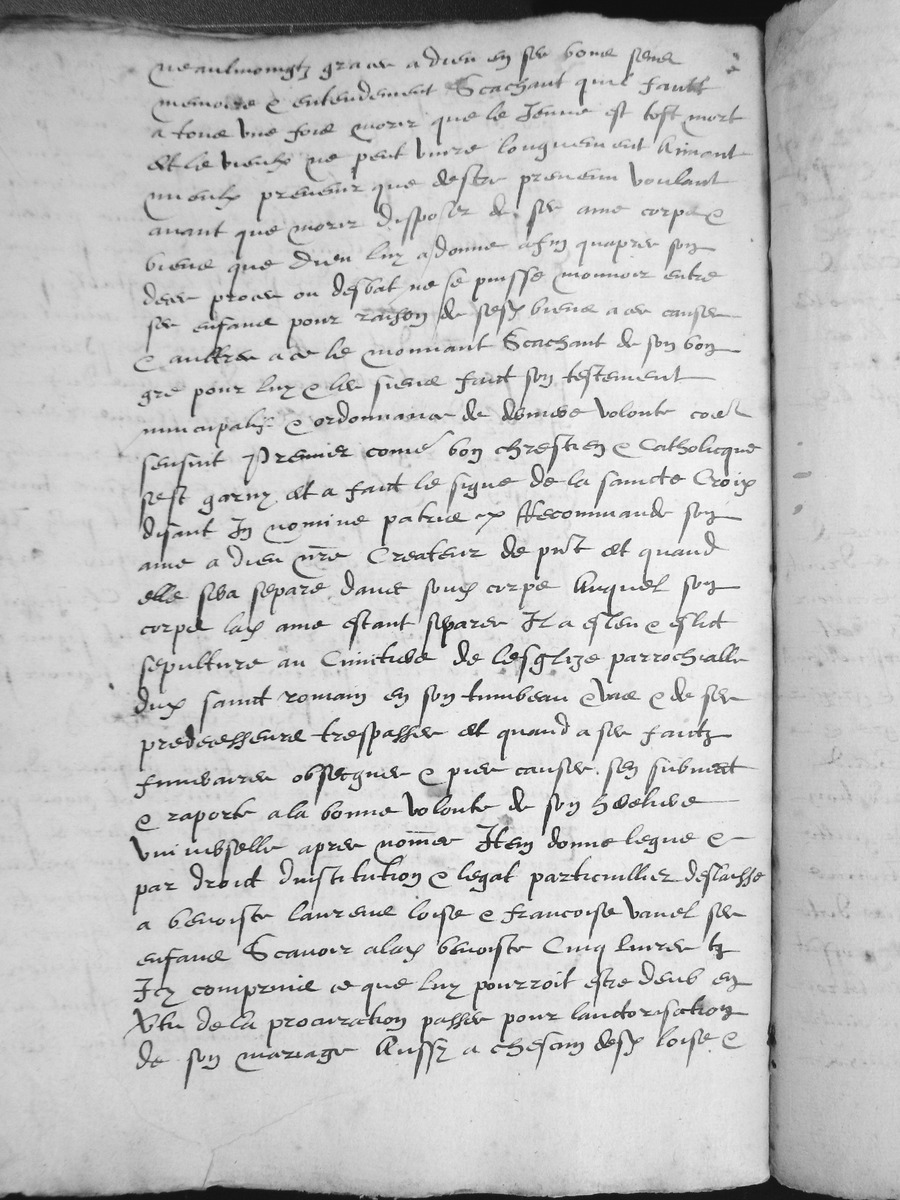 neaulmoingtz graces a dieu en ses bons sens
memoire & entendement Scachant quil fault
a tous une fois morir que le Jeune est tost mort
et le vieulx ne peut vivre longuement Aimant
mieulx prevenir que destre prevenu voulant
avant que morir disposer de ses ame corps &
biens que Dieu luy a donne afin quapres son
deces proces ou desbat ne se puisse mouvoir entre
ses enfans pour raison de sesd biens a ces causes
& aultres a ce le mouvant Scachant de son bon
gre pour luy & les siens faict son testement
nuncupatif & ordonnance de derniere volonte coe
sensuit Premier come bon chrestien & Catholicque
sest garny et a faict le signe de la saincte Croix
disant In nomine patris & Recommande son
ame a dieu nre Createur de pnt et quand
elle sera separe davec sond corps Auquel son
corps lad ame estant separee Il a esleu & eslit
sepulture au Cimetiere de lesglize parrochialle
dud sainct romain en son tumbeau & vas & de ses
predecesseurs trespasses et quand a ses faictz
funeraires obseques & pies causes sen submect
& raporte a la bonne volonte de son heretiere
universelle apres nommee Item donne legue &
par droict dinstitution & legat particullier deslaisse
a benoiste laurence loise & francoise vanel ses
enfans Scavoir a lad benoiste Cinq livres tz
Icy comprins ce que luy pourroit estre deub en
vtu de la procuration passee pour lautorisation
de son mariage Aussy a chescun desd loise &